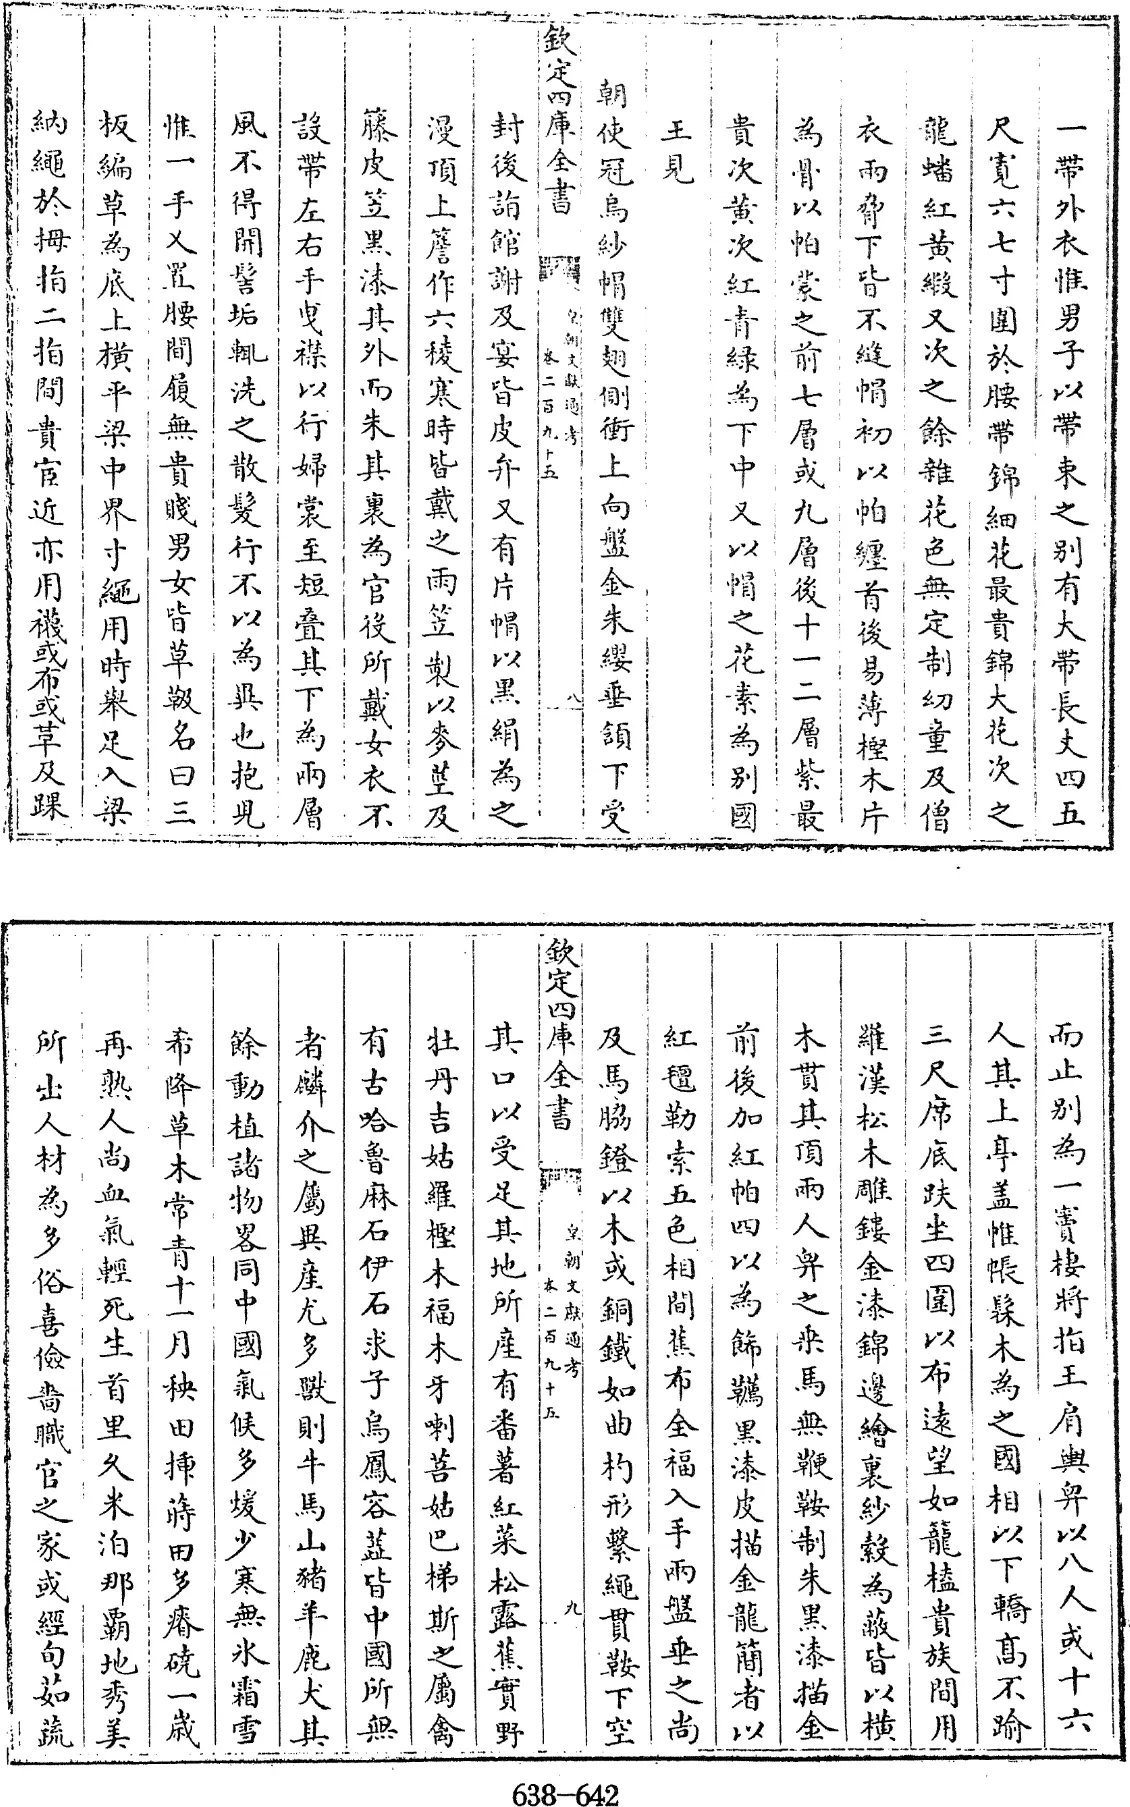 一帶外衣惟男子以帶束之别有大帶長丈四五
尺寛六七寸圍於腰帶錦細花最貴錦大花次之
龍蟠紅黄緞又次之餘雜花色無定制幼童及僧
衣兩脅下皆不縫帽初以帕纏首後易薄樫木片
為骨以帕䝉之前七層或九層後十一二層紫最
貴次黄次紅青緑為下中又以帽之花素為别國
王見
朝使冠烏紗帽雙翅側衝上向盤金朱纓垂頷下受
欽定四庫全書
皇朝文獻通考
卷二百九十五
八
封後詣館謝及宴皆皮弁又有片帽以黒絹為之
漫頂上簷作六稜寒時皆戴之雨笠製以麥莖及
籐皮笠黒漆其外而朱其裏為官役所戴女衣不
設帶左右手曳襟以行婦裳至短疊其下為兩層
風不得開髻垢輒洗之散髮行不以為異也抱兒
惟一手乂置腰間履無貴賤男女皆草靸名曰三
板編草為底上横平梁中界寸繩用時舉足入梁
納繩於拇指二指間貴宦近亦用襪或布或草及踝
而止别為一竇棲將指王肩輿舁以八人或十六
人其上亭盖帷帳髹木為之國相以下轎髙不踰
三尺席底趺坐四圍以布遠望如籠榼貴族間用
羅漢松木雕鏤金漆錦邊繪裏紗縠為蔽皆以横
木貫其頂兩人舁之乘馬無鞭鞍制朱黒漆描金
前後加紅帕四以為飾韉黒漆皮描金龍簡者以
紅氊勒索五色相間蕉布全福入手兩盤垂之尚
及馬脇鐙以木或銅鐵如曲杓形繫繩貫鞍下空
欽定四庫全書
皇朝文獻通考
卷二百九十五
九
其口以受足其地所産有番薯紅菜松露蕉實野
牡丹吉姑羅樫木福木牙喇菩姑巴梯斯之屬禽
有古哈魯麻石伊石求子烏鳳容蓝皆中國所無
者鱗介之屬異産尤多獸則牛馬山豬羊鹿犬其
餘動植諸物畧同中國氣候多煖少寒無氷霜雪
希降草木常青十一月秧田揷蒔田多瘠磽一嵗
再熟人尚血氣輕死生首里久米泊那霸地秀美
所出人材為多俗喜儉嗇職官之家或經旬茹蔬
638-642